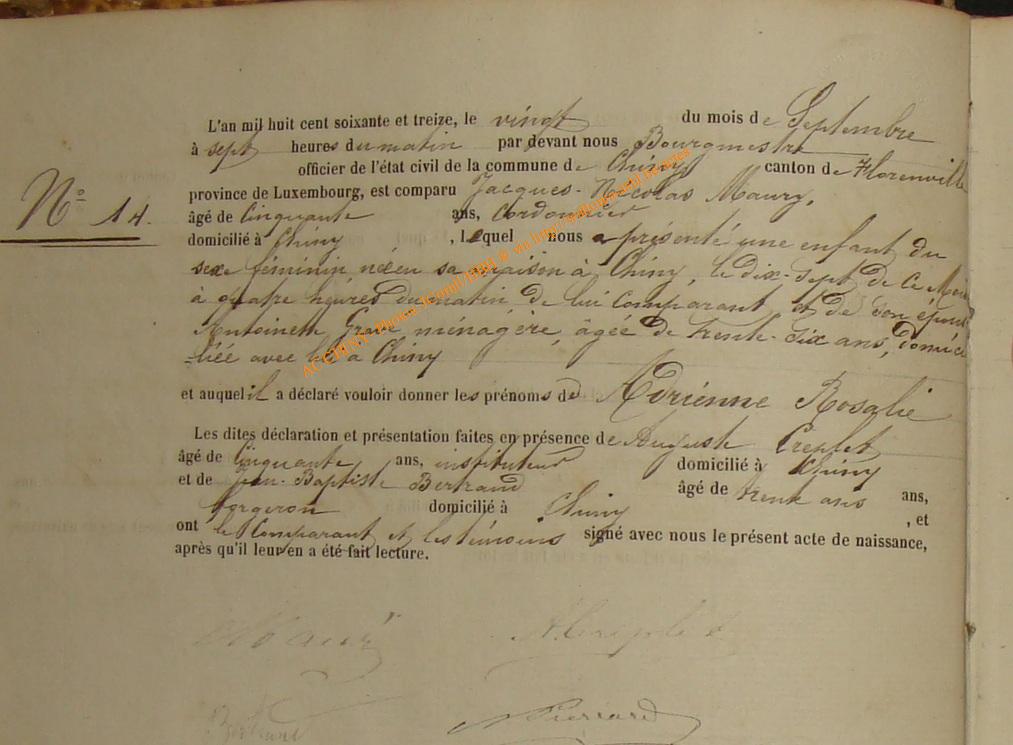 L'an mil huit cent soixante et treize, le vingt du mois de Septembre
à sept heures du matin par devant nous Bourgmestre
officier de l'état civil de la commune de Chiny canton de Florenville
N° 14.
province de Luxembourg, est comparu Jacques-Nicolas Maury,
âgé de Cinquante ans, cordonnier
domicilié à Chiny, lequel nous a présenté une enfant du
sexe féminin née en sa maison à Chiny, le dix-sept de ce Mois
à quatre heures du matin de lui Comparant et de son épouse
Antoinette ménagère, âgée de trente-six ans, domici
-liée avec lui a Chiny
et auquel il a déclaré vouloir donner les prénoms de Adrienne Rosalie
Les dites déclaration et présentation faites en présence de Auguste Créplet
âgé de Cinquante ans, instituteur domicilié à Chiny
et de Jean-Baptiste Bertrand âgé de trente ans ans,
forgeron domicilié à Chiny , et
ont le Comparant et les témoins signé avec nous le présent acte de naissance,
après qu'il leur en a été fait lecture.
A Créplet
Bertrand Pierrard